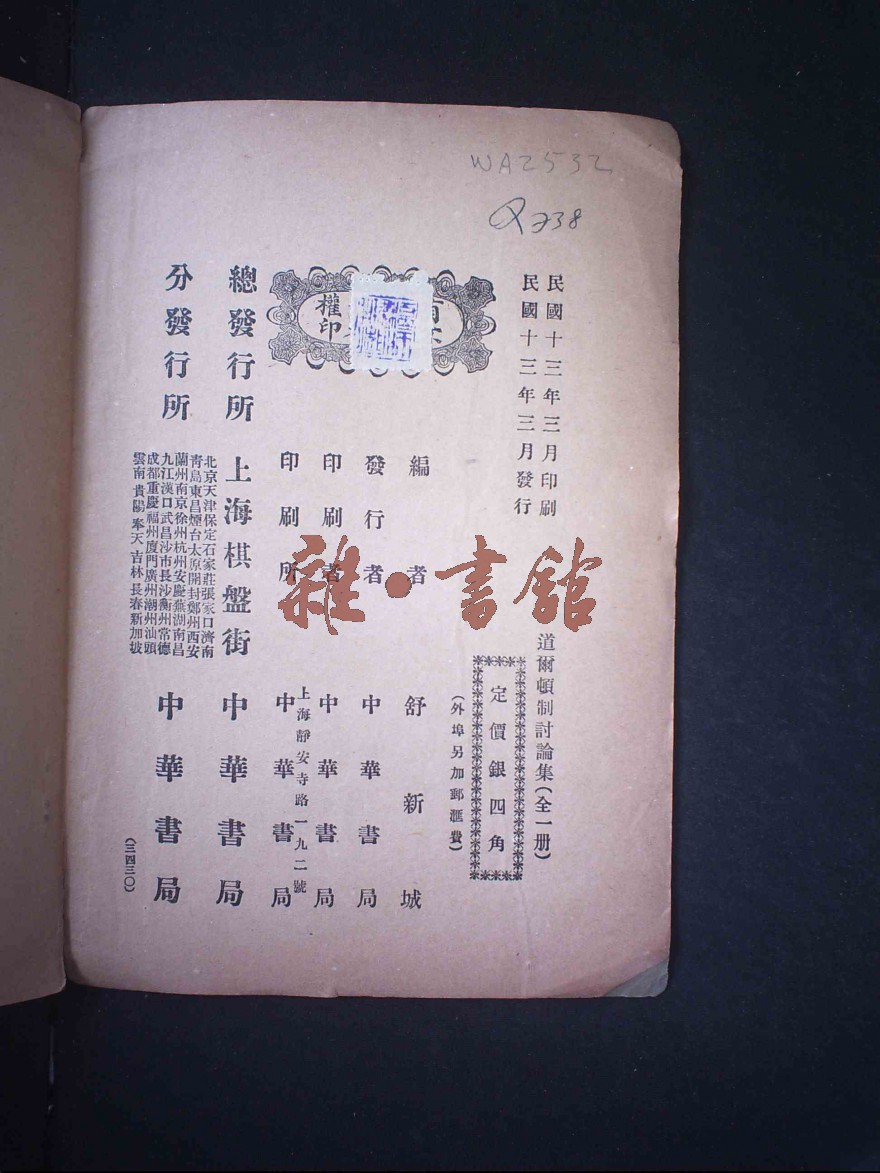 WA2532
民國十三年三月印刷
民國十三年三月發行
道爾頓制討論集(全一册)
定價銀四角
(外埠另加郵滙費)
編者 舒新城
發行者 中華書局
印刷者 中華書局
上海靜安寺路一九二號
印刷所 中華書局
權印
總發行所 上海棋盤街 中華書局
分發行所 中華書局
北京天津保定石家莊張家口濟南
青島東昌煙台太原開封鄭州西安
蘭州南京徐州杭州安慶蕪湖南昌
九江漢口武昌沙市長沙衡州常德
成都重慶福州廈門廣州潮州汕頭
雲南貴陽奉天吉林長春新加坡
(三四三〇)
雜·書館